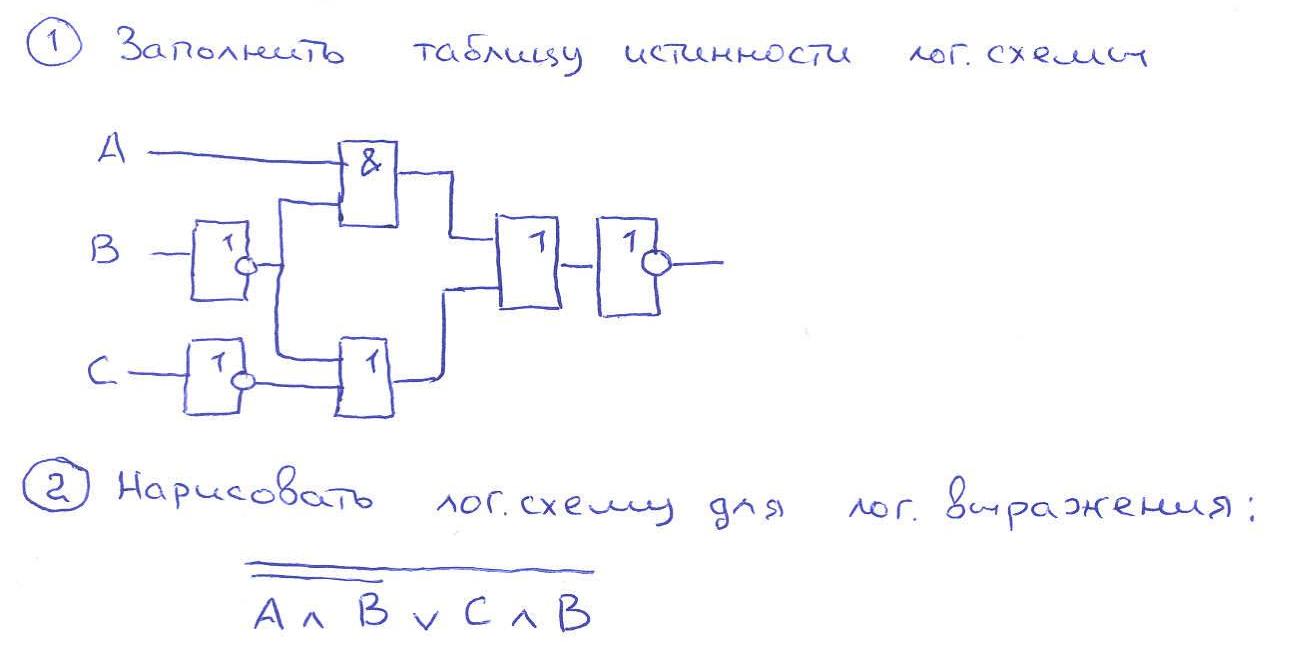 1 Заполнить таблицу истинности лог. схемы
A
&
B
1
1
1
C
1
1
2 Нарисовать лог. схему для лог. выражения:
A ∧ B ∨ C ∧ B